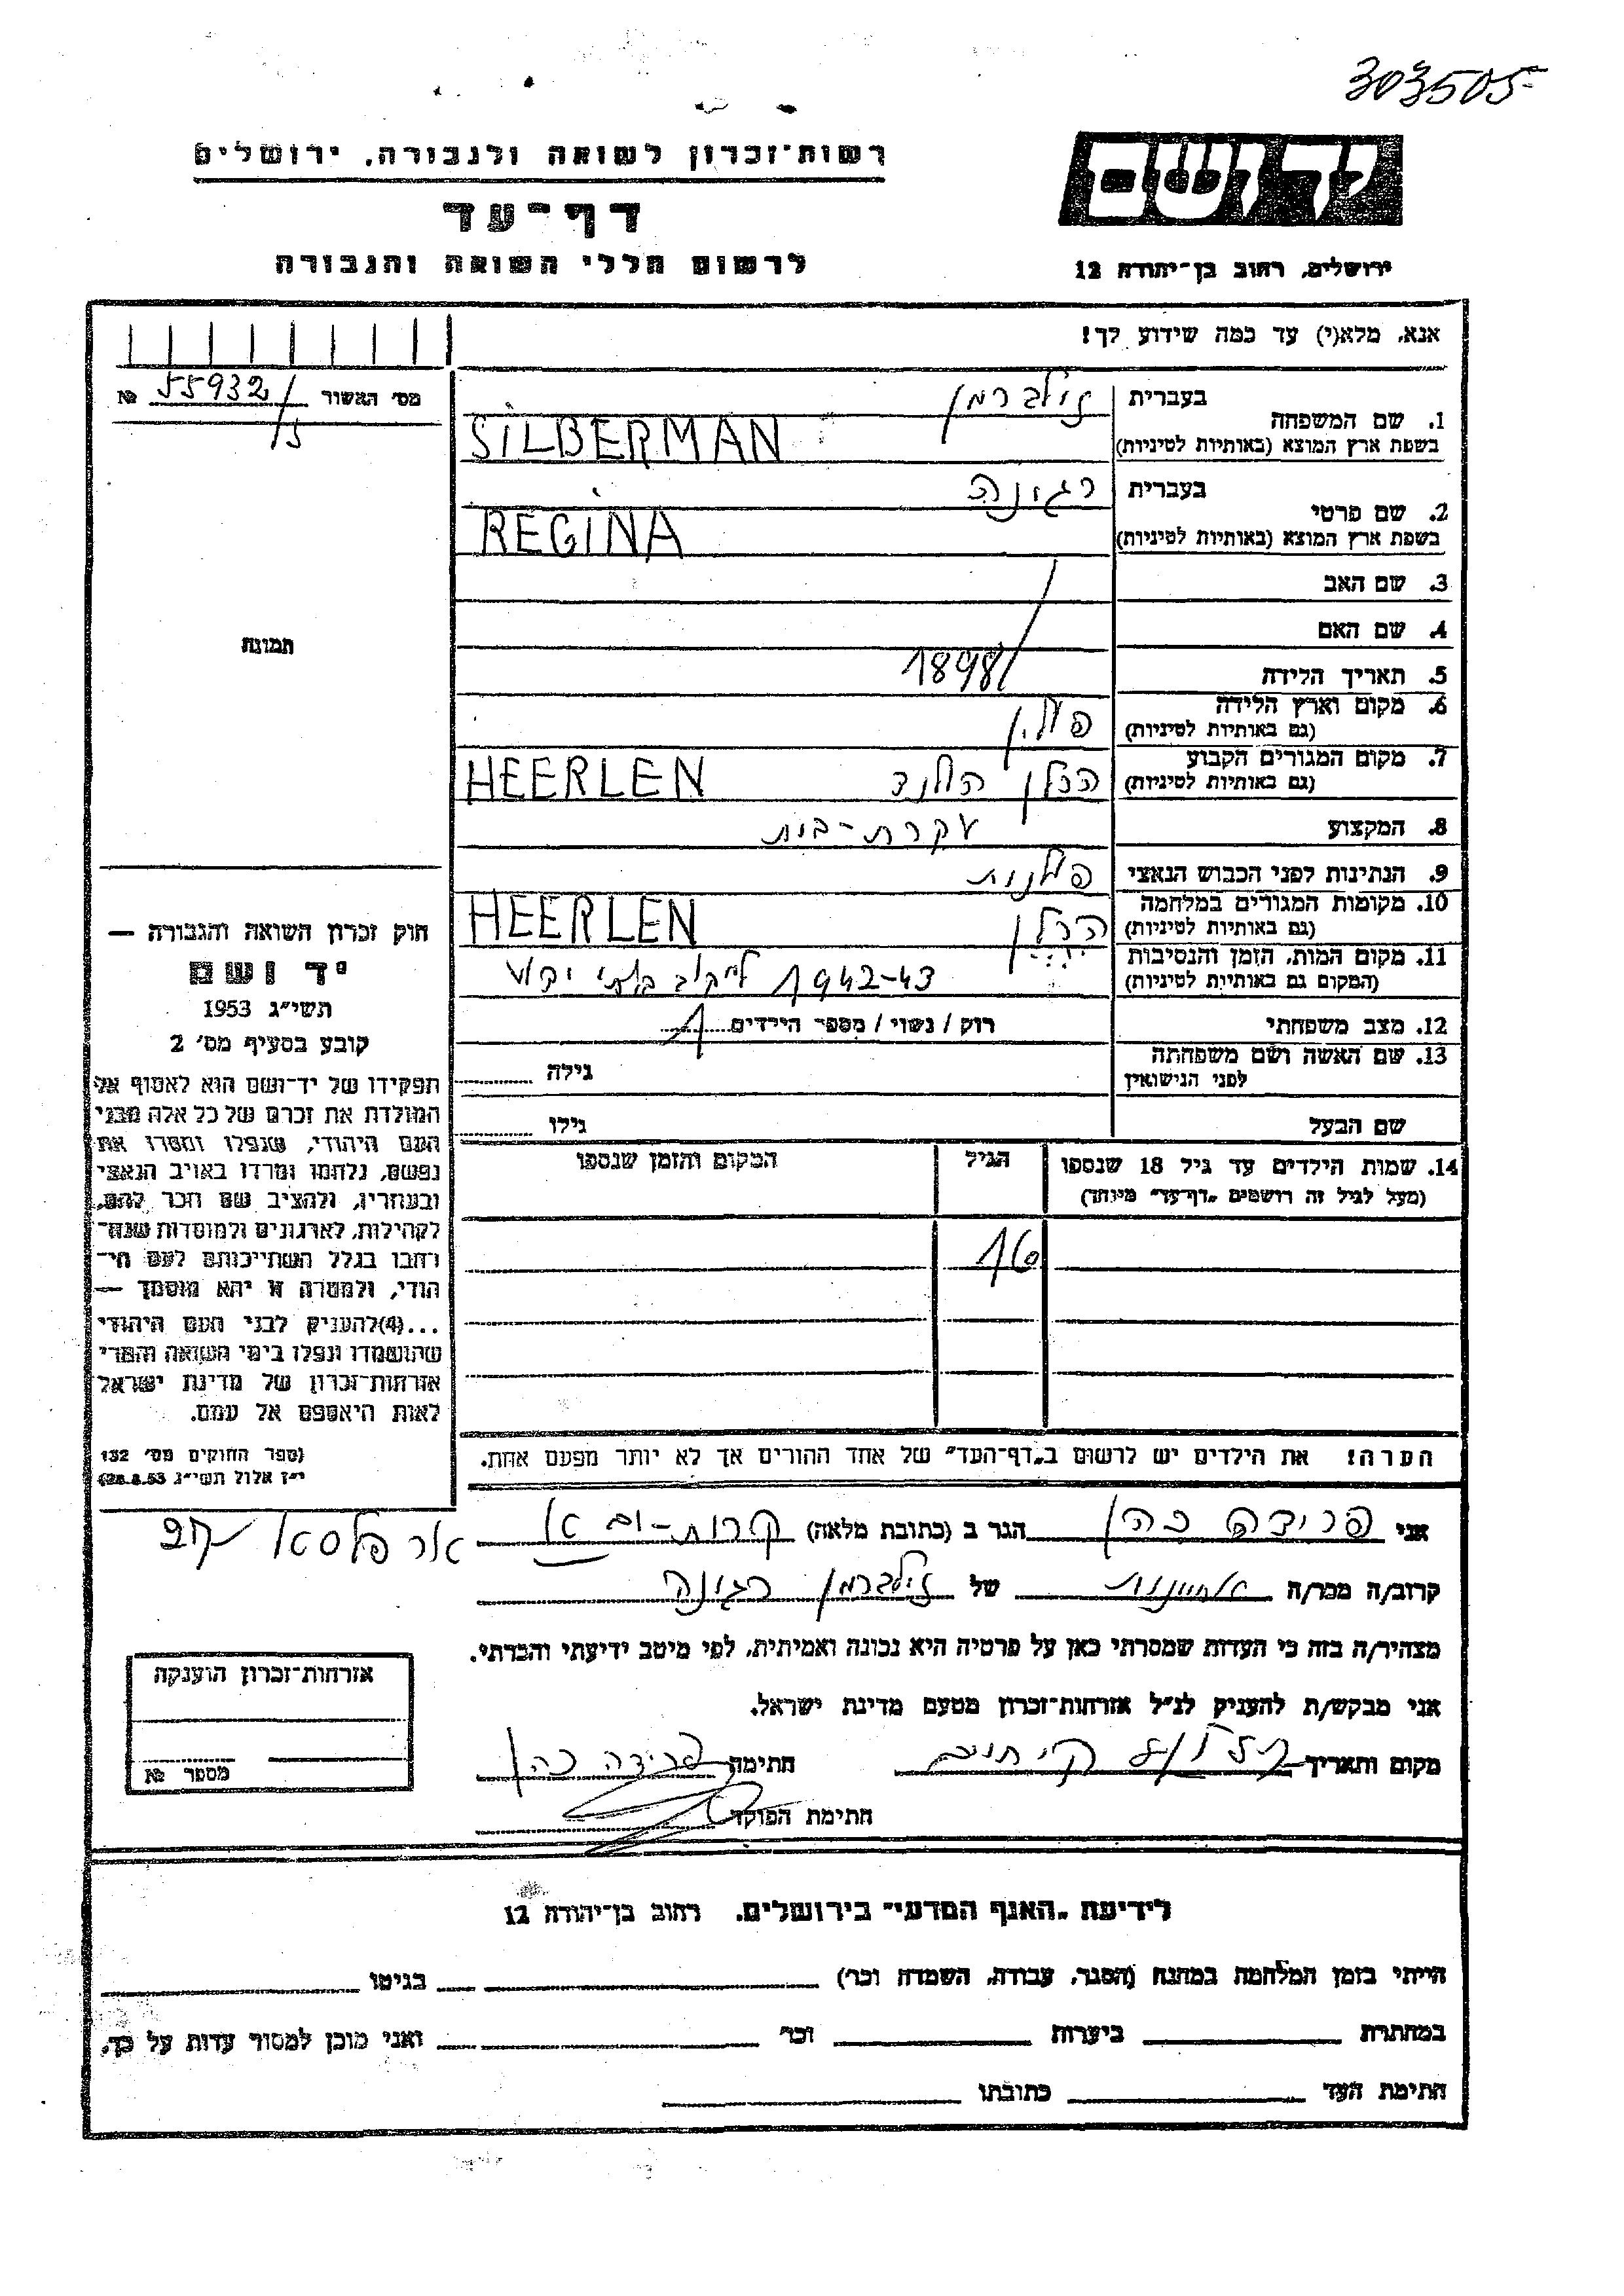 303505
רשות־זכרון לשואה ולגבורה, ירושלים
יד ושם
דף־עד
לרשום חללי השואה והגבורה
ירושלים, רחוב בן־יהודה 12
אנא, מלא(י) עד כמה שידוע לך!
מס׳ האשור 55932/5 №
1. שם המשפחה
בעברית זילברמן
בשפת ארץ המוצא (באותיות לטיניות) SILBERMAN
2. שם פרטי
בעברית רגינה
בשפת ארץ המוצא (באותיות לטיניות) REGINA
3. שם האב
4. שם האם
5. תאריך הלידה 1898
6. מקום וארץ הלידה פולין
(גם באותיות לטיניות)
7. מקום המגורים הקבוע הרלן הולנד HEERLEN
(גם באותיות לטיניות)
8. המקצוע עקרת-בית
9. הנתינות לפני הכבוש הנאצי פולנית
10. מקומות המגורים במלחמה הרלן HEERLEN
(גם באותיות לטיניות)
11. מקום המות, הזמן והנסיבות 1942-43
(המקום גם באותיות לטיניות)
12. מצב משפחתי רוק / נשוי / מספר הילדים 1
13. שם האשה ושם משפחתה גילה
לפני הנישואין
שם הבעל גילו
14. שמות הילדים עד גיל 18 שנספו הגיל המקום והזמן שנספו
(מעל לגיל זה רושמים „דף־עד״ מיוחד)
16
הערה! את הילדים יש לרשום ב„דף־העד״ של אחד ההורים אך לא יותר מפעם אחת.
תמונה
חוק זכרון השואה והגבורה —
יד ושם
תשי״ג 1953
קובע בסעיף מס׳ 2
תפקידו של יד־ושם הוא לאסוף אל
המולדת את זכרם של כל אלה מבני
העם היהודי, שנפלו ומסרו את
נפשם, נלחמו ומרדו באויב הנאצי
ובעוזריו, ולהציב שם וזכר להם,
לקהילות, לארגונים ולמוסדות שנח־
רבו בגלל השתייכותם לעם הי־
הודי, ולמטרה זו יהא מוסמך —
...(4)להעניק לבני העם היהודי
שהושמדו ונפלו בימי השואה והמרי
אזרחות־זכרון של מדינת ישראל
לאות היאספם אל עמם.
(ספר החוקים מס׳ 132
י״ז אלול תשי״ג 28.8.53)
אני פרידה כהן הגר ב (כתובת מלאה) קרית-ים
קרוב/ה מכר/ה אחיינית של זילברמן רגינה
מצהיר/ה בזה כי העדות שמסרתי כאן על פרטיה היא נכונה ואמיתית, לפי מיטב ידיעתי והכרתי.
אני מבקש/ת להעניק לנ״ל אזרחות־זכרון מטעם מדינת ישראל.
מקום ותאריך חתימה פרידה כהן
חתימת הפוקד
אזרחות־זכרון הוענקה
מספר №
לידיעת „האגף המדעי״ בירושלים. רחוב בן־יהודה 12
הייתי בזמן המלחמה במחנה (הסגר, עבודה, השמדה וכו׳) בגיטו
במחתרת ביערות וכו׳ ואני מוכן למסור עדות על כך.
חתימת העד כתובתו